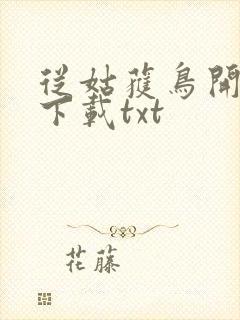 從姑蒦鳥開
下載txt
花藤